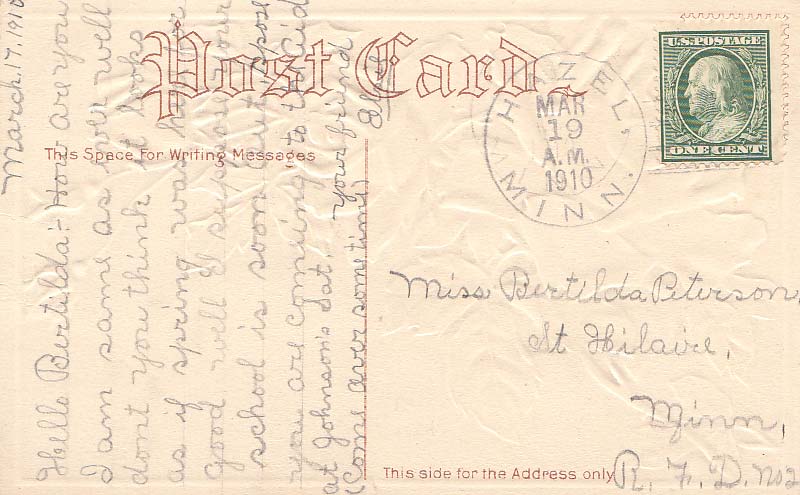 Post Card
This Space For Writing Messages
HAZEL, MINN.
MAR
19
A.M.
1910
U.S. POSTAGE
ONE CENT
March. 17. 1910
Hello Bertilda:- How are you
I am same as ever well
dont you think it looks
as if spring was here
Good well I suppose your
school is soon out
you are coming to the Aid
at Johnson's Sat. your friend
(Come over sometime)
Miss Bertilda Peterson,
St Hilaire,
Minn,
R. F. D. No 2
This side for the Address only